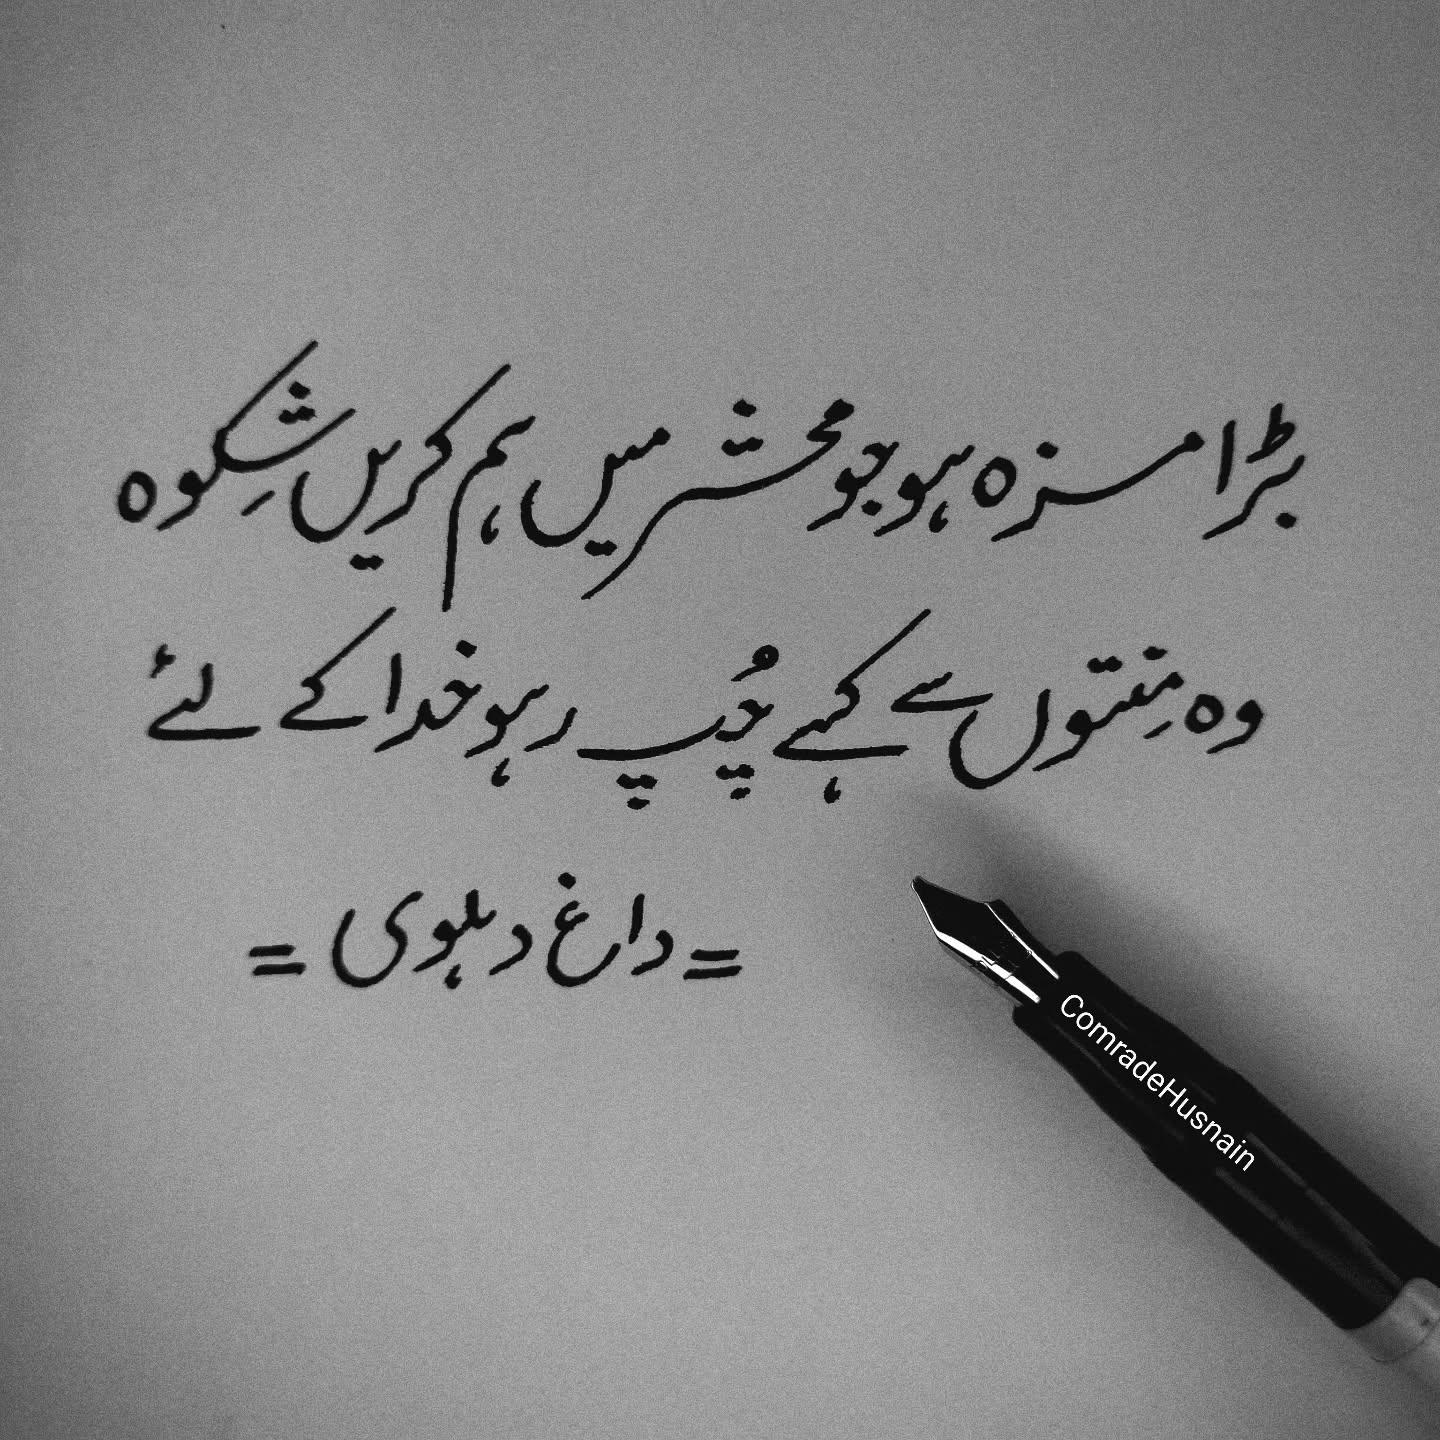 بڑا مزہ ہو جو محشر میں ہم کریں شِکوہ
وہ مِنتوں سے کہے چُپ رہو خدا کے لئے
= داغ دہلوی =
ComradeHusnain